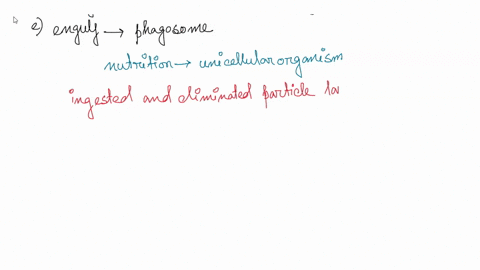 e) engulf → phagosome
nutrition → unicellular organism
ingested and eliminated particle la